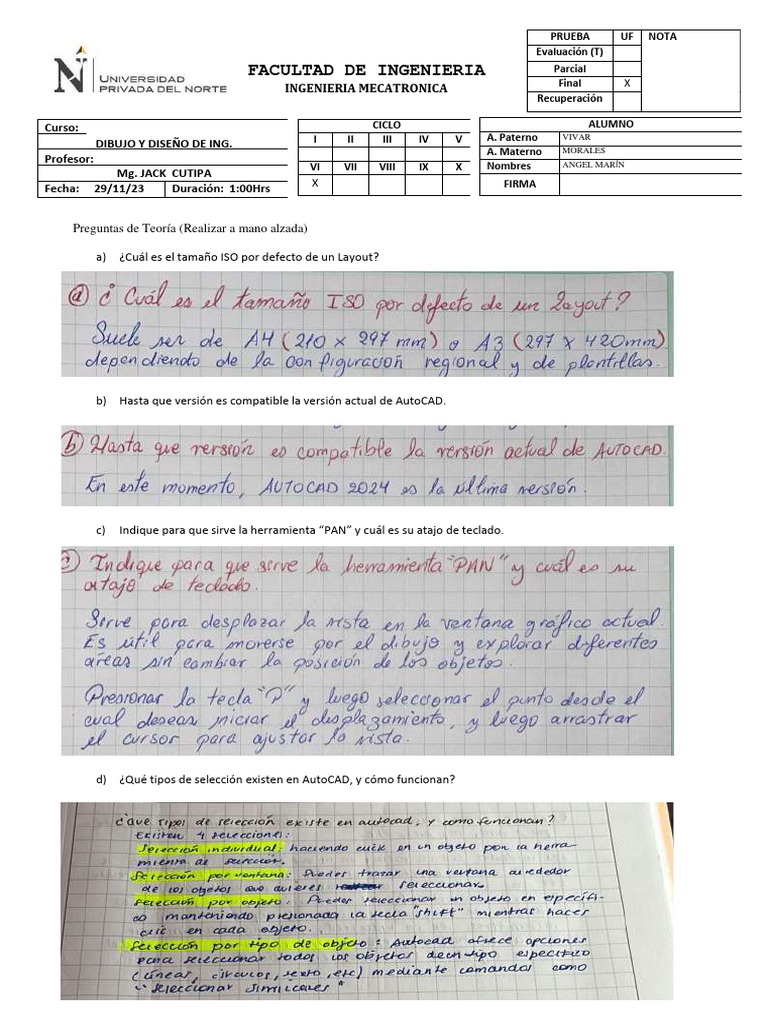 UNIVERSIDAD
PRIVADA DEL NORTE
FACULTAD DE INGENIERIA
INGENIERIA MECATRONICA
PRUEBA UF NOTA
Evaluación (T)
Parcial
Final X
Recuperación
Curso:
DIBUJO Y DISEÑO DE ING.
Profesor:
Mg. JACK CUTIPA
Fecha: 29/11/23 Duración: 1:00Hrs
CICLO
I II III IV V
VI VII VIII IX X
X
ALUMNO
A. Paterno VIVAR
A. Materno MORALES
Nombres ANGEL MARÍN
FIRMA
Preguntas de Teoría (Realizar a mano alzada)
a) ¿Cuál es el tamaño ISO por defecto de un Layout?
a) ¿Cuál es el tamaño ISO por defecto de un Layout?
Suele ser de A4 (210 x 297 mm) o A3 (297 x 420mm)
dependiendo de la configuración regional y de plantillas.
b) Hasta que versión es compatible la versión actual de AutoCAD.
b) Hasta que versión es compatible la versión actual de AUTOCAD.
En este momento, AUTOCAD 2024 es la última versión.
c) Indique para que sirve la herramienta “PAN” y cuál es su atajo de teclado.
c) Indique para que sirve la herramienta "PAN" y cuál es su
atajo de teclado.
Sirve para desplazar la vista en la ventana gráfico actual.
Es útil para moverse por el dibujo y explorar diferentes
áreas sin cambiar la posición de los objetos.
Presionar la tecla "P" y luego seleccionar el punto desde el
cual deseas iniciar el desplazamiento, y luego arrastrar
el cursor para ajustar la vista.
d) ¿Qué tipos de selección existen en AutoCAD, y cómo funcionan?
¿Que tipos de selección existe en autocad, y como funcionan?
Existen 4 selecciones:
Selección individual: haciendo click en un objeto por la herra-
mienta de selección.
Selección por ventana: Puedes trazar una ventana alrededor
de los objetos que quieres seleccionar.
Selección por objeto: Puedes seleccionar un objeto en específi-
co manteniendo presionada la tecla "shift" mientras haces
clic en cada objeto.
Selección por tipo de objeto: Autocad ofrece opciones
para seleccionar todos los objetos de un tipo especifico
(líneas, círculos, texto, etc) mediante comandos como
"seleccionar similares"